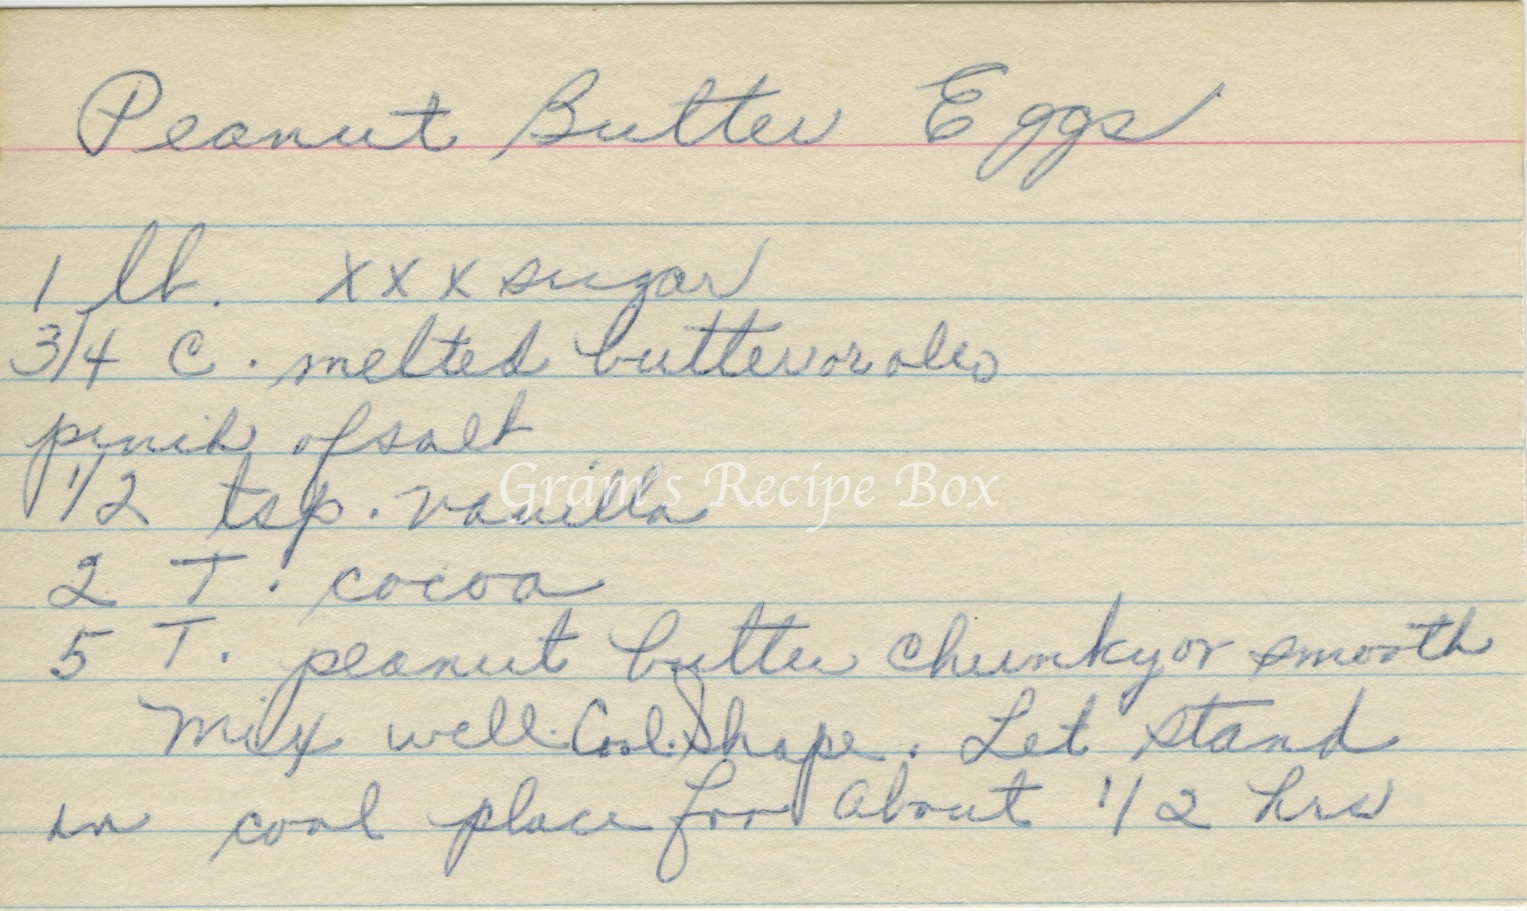 Peanut Butter Eggs
1 lb. xxx sugar
3/4 C. melted butter or oleo
pinch of salt
1/2 tsp. vanilla
Gram's Recipe Box
2 T. cocoa
5 T. peanut butter chunky or smooth
Mix well. Cool. Shape. Let stand
in cool place for about 1/2 hrs